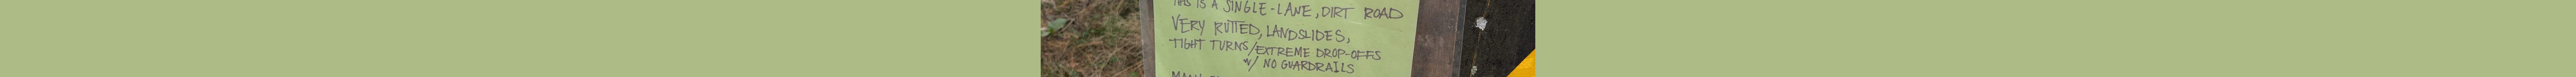 THIS IS A SINGLE-LANE, DIRT ROAD
VERY RUTTED, LANDSLIDES,
TIGHT TURNS/EXTREME DROP-OFFS
W/ NO GUARDRAILS